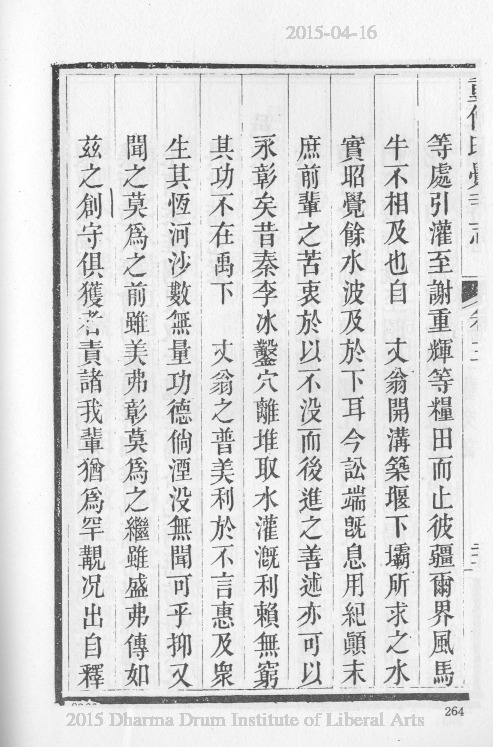 2015-04-16
等處引灌至謝重輝等糧田而止彼疆爾界風馬
牛不相及也自 丈翁開溝築堰下壩所求之水
實昭覺餘水波及於下耳今訟端旣息用紀顚末
庶前輩之苦衷於以不没而後進之善述亦可以
永彰矣昔秦李冰鑿穴離堆取水灌漑利賴無窮
其功不在禹下 丈翁之普美利於不言惠及衆
生其恆河沙數無量功德倘湮没無聞可乎抑又
聞之莫爲之前雖美弗彰莫爲之繼雖盛弗傳如
茲之創守俱獲者責諸我輩猶爲罕覯况出自釋
264
2015 Dharma Drum Institute of Liberal Arts